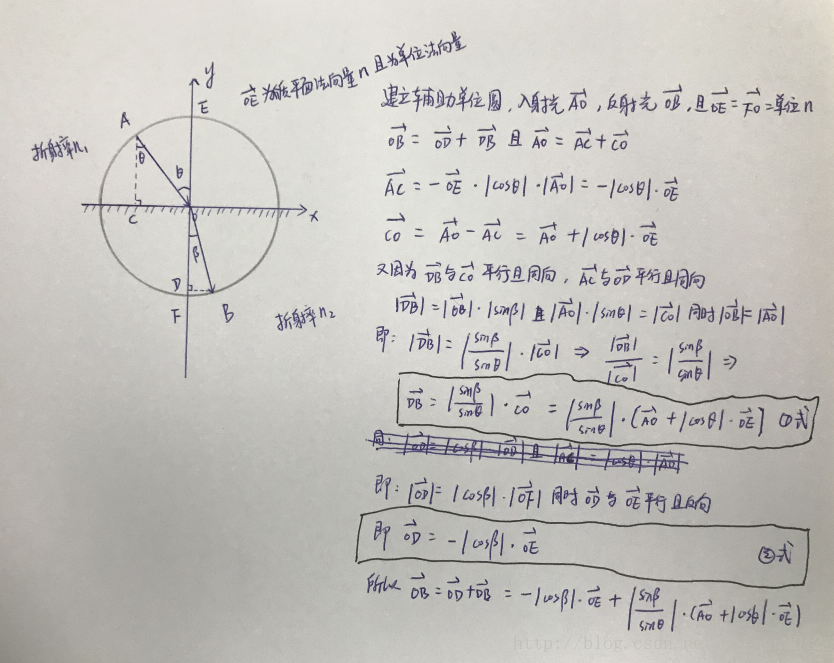 y
OE为该平面法向量n且为单位法向量
E
A
折射率n₁
θ
θ
C
x
β
D
F
B
折射率n₂
建立辅助单位圆,入射光AO,反射光OB,且OE=FO=单位n
OB = OD + DB 且 AO = AC + CO
AC = -OE·|cosθ|·|AO| = -|cosθ|·OE
CO = AO - AC = AO + |cosθ|·OE
又因为 DB与CO 平行且同向,AC与OD平行且同向
|DB| = |OB|·|sinβ| 且 |AO|·|sinθ| = |CO| 同时|OB|=|AO|
即: |DB| = |sinβ/sinθ|·|CO| ⇒ |DB|/|CO| = |sinβ/sinθ| ⇒
DB = |sinβ/sinθ|·CO = |sinβ/sinθ|·(AO + |cosθ|·OE) ①式
即: |OD| = |cosβ|·|OF| 同时OD与OE平行且反向
即 OD = -|cosβ|·OE ②式
所以 OB = OD + DB = -|cosβ|·OE + |sinβ/sinθ|·(AO + |cosθ|·OE)